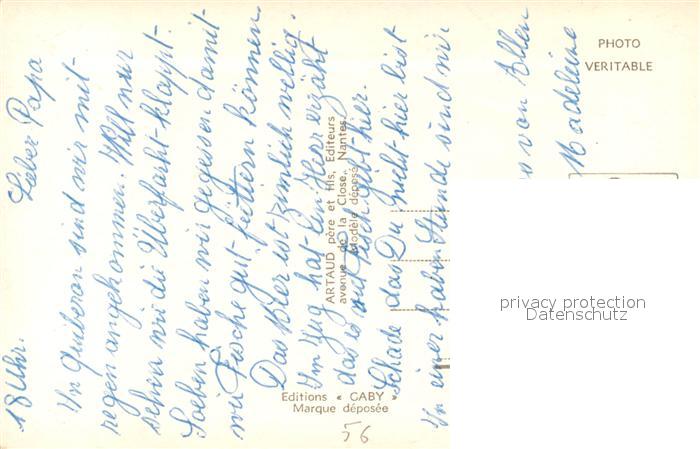 18 Uhr.
Lieber Papa
In Quiberon sind wir mit-
regen angekommen. Will nur
sehen wie die Überfahrt-klappt-
Soeben haben wir gegessen damit-
wir Fische gut-füttern können
Das Bier ist zimlich willig.
Im Zug hat-ein Herr erzählt
das es viel Fisch gibt-hier.
Schade das Du nicht-hier bist
In einer halben Stunde sind wir
von Allen
Madeleine
PHOTO
VERITABLE
ARTAUD père et fils, Editeurs
avenue de la Close, Nantes
Modèle déposé
Editions « GABY »
Marque déposée
56
privacy protection
Datenschutz